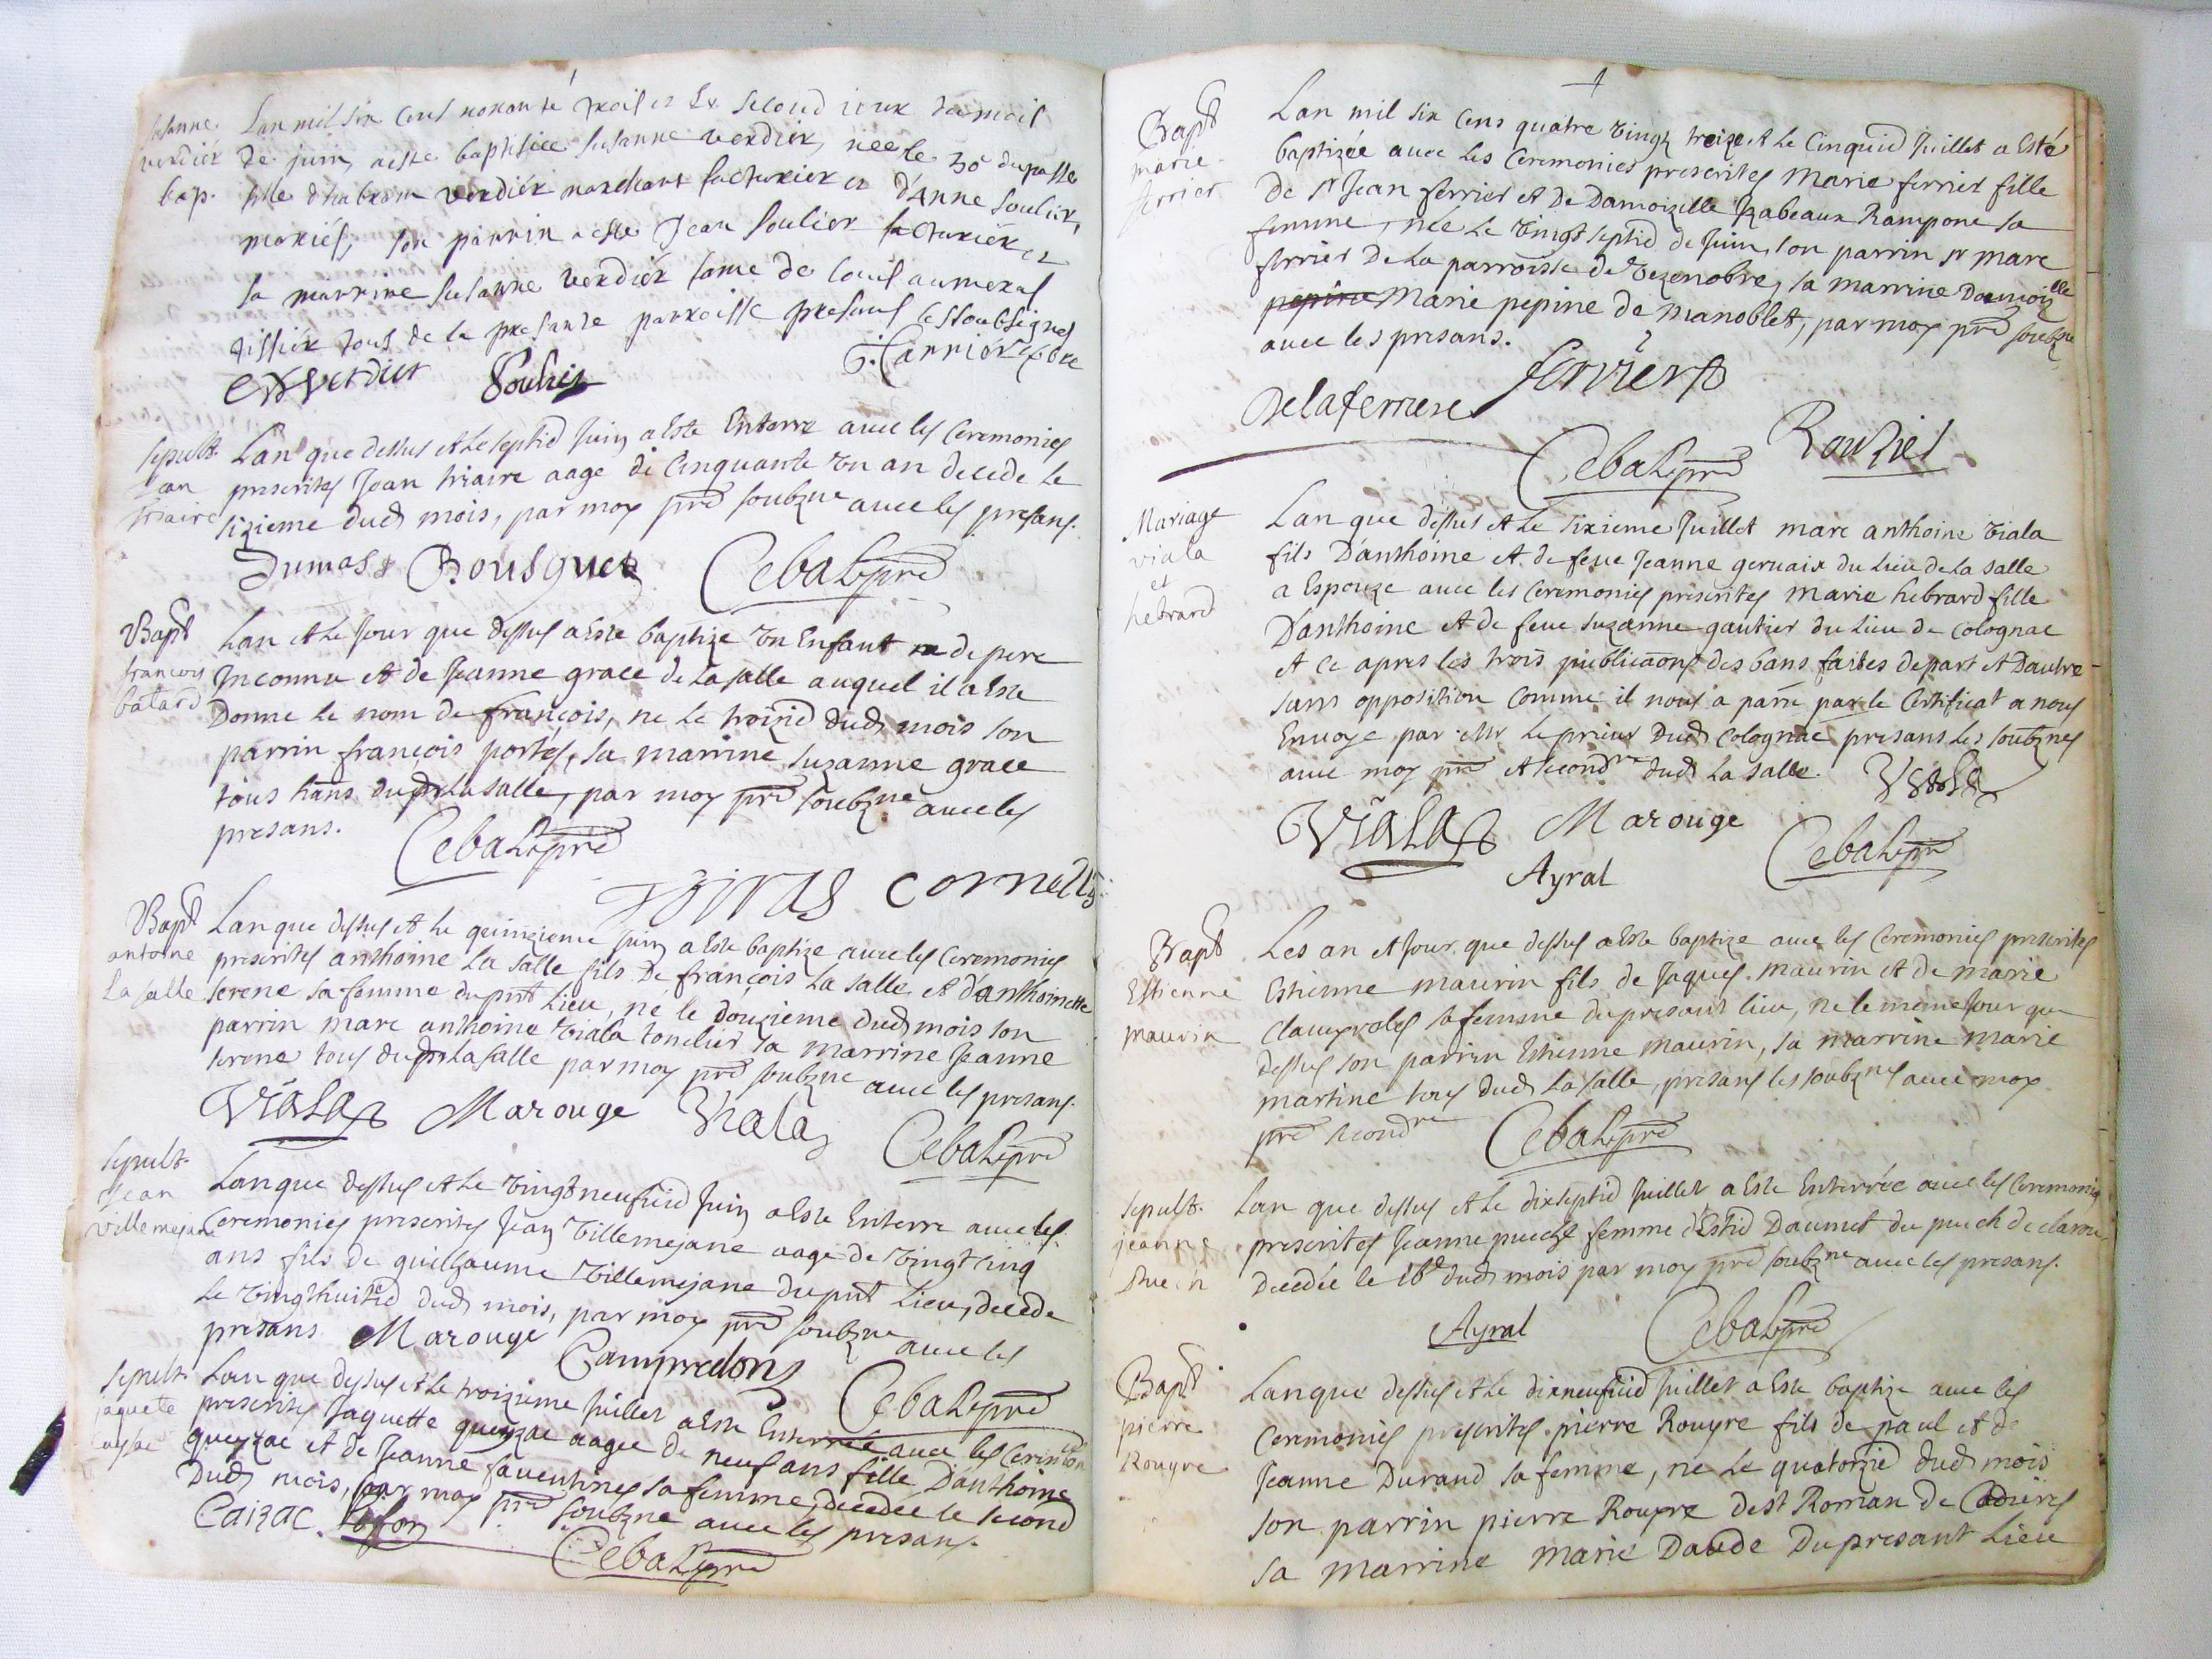 susanne
verdier
bap.
Lan mil six cens nonante trois et le second jour du mois
de juin, a esté baptisée susanne verdier, née le 30e du passé
fille d'habram verdier marchant facturier et d'Anne soulier,
mariés, son parrin a esté Jean soulier facturier et
sa marrine susanne verdier fame de louis aumeras
tissier tous de la presante parroisse presens les soubsignes
Verdier Soulier G. Carrière
sepult.
Jean
triaire
Lan que dessus et le septie Juin a Esté Enterré avec les Ceremonies
prescrites Jean triaire aagé de Cinquante Un an decedé le
sizieme dud mois, par moy pre soubzne avec les presans.
Dumas Bousquet Cebal pre
Bapt
francois
batard
Lan et le Jour que dessus a Esté baptizé Un Enfant de pere
Inconnu et de Jeanne grace de La salle auquel il a Esté
Donné le nom de françois, né le troizie dud mois son
parrin françois portes, sa marrine suzanne grace
tous hans dud La salle, par moy pre soubzne avec les
presans.
Cebal pre
Corneilly
Bapt
antoine
La salle
Lan que dessus et le quinzieme Juin a Esté baptizé avec les Ceremonies
prescrites anthoine La salle fils de françois La salle et d'anthoinette
serene sa femme du pnt Lieu, né le douzieme dud mois son
parrin marc anthoine Viala tonelier sa marrine Jeanne
serene tous dud La salle par moy pre soubzne avec les presans.
Viala Marouge Viala Cebal pre
sepult.
Jean
villemejane
Lan que dessus et le Vingt neufvie Juin a Esté Enterré avec les
Ceremonies prescrites Jean Villemejane aagé de Vingt cinq
ans fils de guillaume Villemejane du pnt Lieu, decedé
le Vingthuitie dud mois, par moy pre soubzne avec les
presans Marouge Campredon Cebal pre
sepult
jaquete
Lan que dessus et le troizieme Juillet a Esté Enterrée avec les Ceremon
prescrites Jaquette queyzac aagée de neuf ans fille D'anthoine
queyzac et de Jeanne faventines sa femme, decedée le second
Dud mois, par moy pre soubzne avec les presans.
Caizac Lafon Cebal pre
Bapt
marie
ferrier
Lan mil six Cens quatre Vingt treize et le Cinquie Juillet a Esté
baptizée avec les Ceremonies prescrites Marie ferrier fille
De sr Jean ferrier et de Damoizelle Izabeau Rampone sa
femme, née le Vingt septie de Juin, son parrin sr marc
ferrier de La parroisse de Vezenobre, sa marrine Damoizlle
pepine Marie pepine de manoblet, par moy pre soubzne
avec les presans.
Delaferriere ferrier
Cebal pre Rouziel
Mariage
viala
et
hebrard
Lan que dessus et le sixieme Juillet marc anthoine Viala
fils D'anthoine et de feue Jeanne gervaix du Lieu de La salle
a Espouzé avec les Ceremonies prescrites Marie hebrard fille
D'anthoine et de feue suzanne gautier du Lieu de Colognac
et ce apres les trois publicaons des bans faites de part et Dautre
sans opposition Comme il nous a paru par le Certificat a nous
Envoyé par Mr Le prieur Dud Colognac presans les soubznes
avec moy pre et secondre dud La salle. Viala
Viala Marouge
Ayral Cebal pre
Bapt
Estienne
maurin
Les an et Jour que dessus a Esté baptizé avec les Ceremonies prescrites
Estienne maurin fils de Jaques maurin et de marie
Claveyroles sa femme du presant lieu, né le meme Jour que
dessus son parrin Estienne maurin, sa marrine marie
martine tous dud La salle, presans les soubznes avec moy
pre secondre Cebal pre
sepult.
jeanne
Puech
Lan que dessus et le dixseptie Juillet a Esté Enterrée avec les Ceremonies
prescrites Jeanne puech femme d'Estie Daumet du puech de
decedée le 16e dud mois par moy pre soubzne avec les presans.
Ayral Cebal pre
Bapt
pierre
Rouyre
Lan que dessus et le dixneufvie Juillet a Esté baptizé avec les
Ceremonies prescrites pierre Rouyre fils de paul et de
Jeanne Durand sa femme, né le quatorzie dud mois
son parrin pierre Rouyre de st Roman de Codieres
sa marrine marie Daude Du presant Lieu